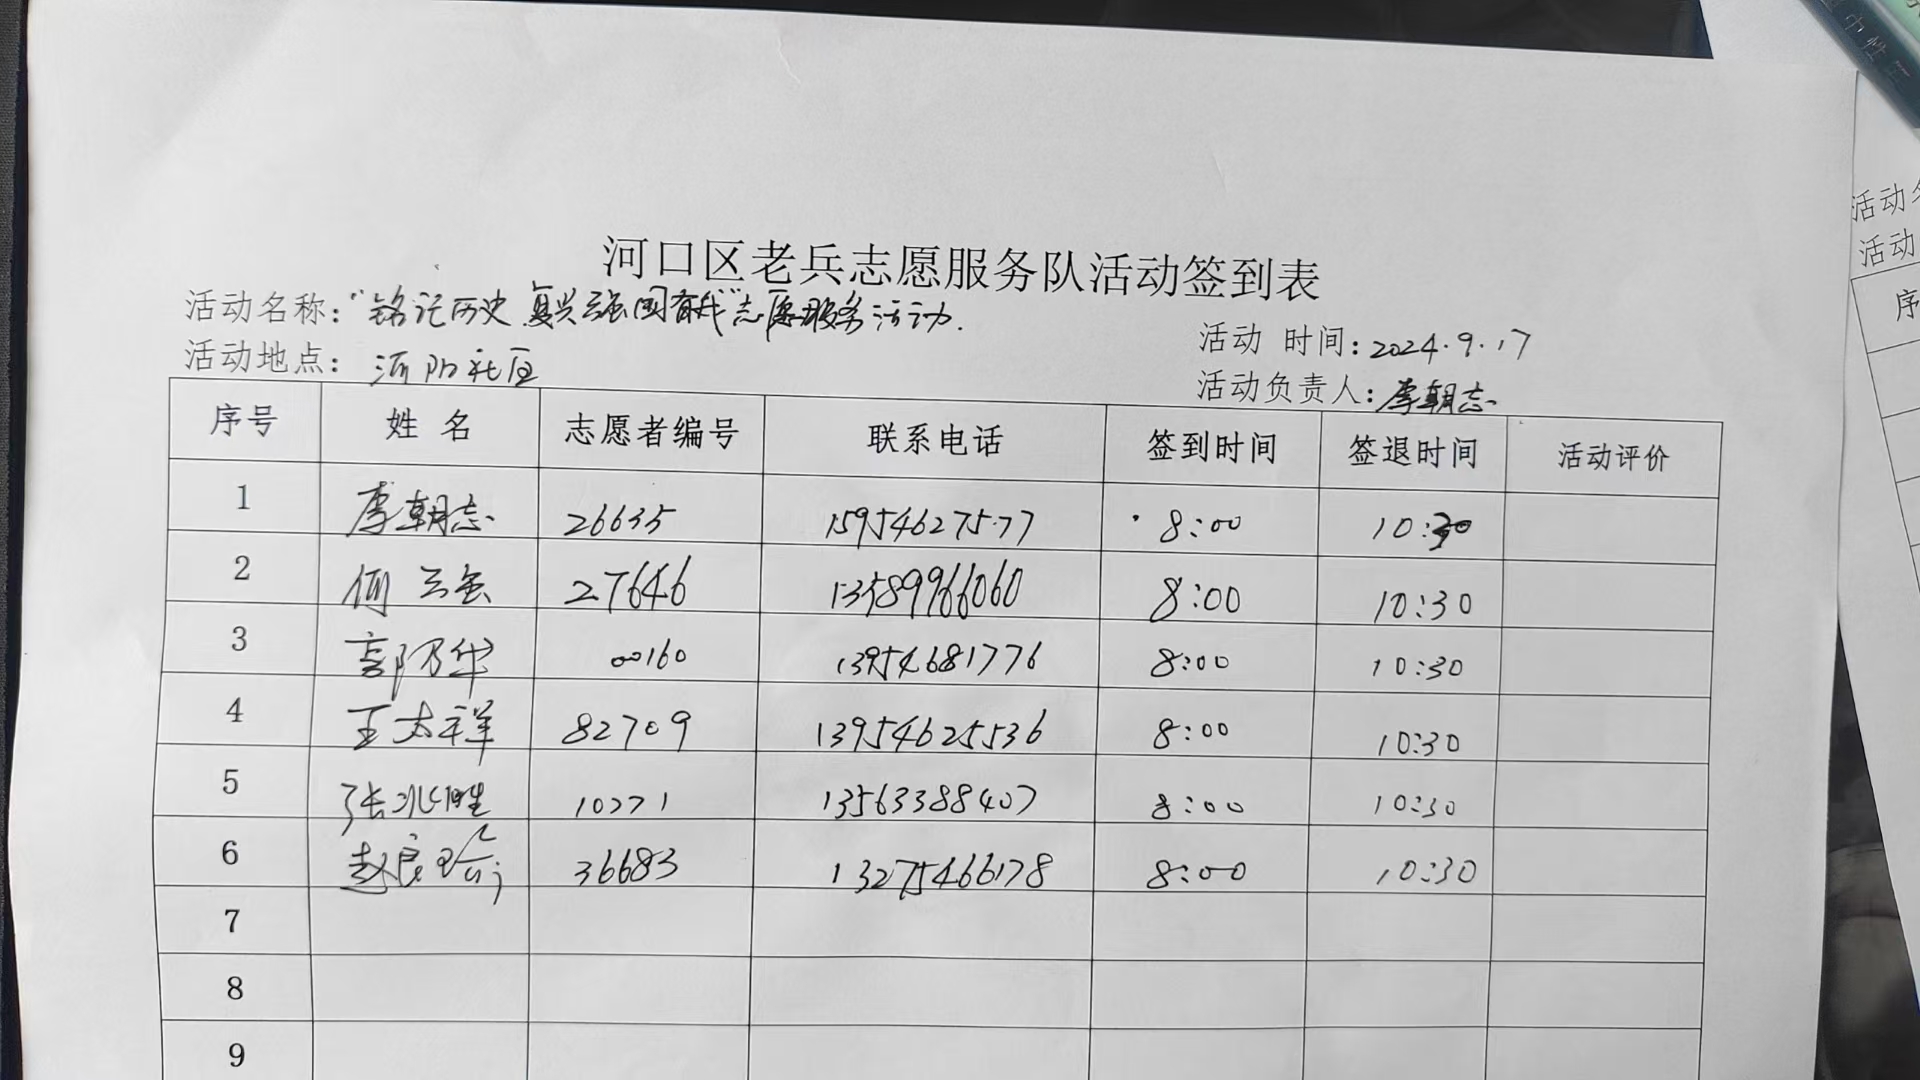 河口区老兵志愿服务队活动签到表
活动名称:“铭记历史 复兴强国有我”志愿服务活动.
活动 时间:2024.9.17
活动地点: 河阳社区
活动负责人:李朝志
序号 姓 名 志愿者编号 联系电话 签到时间 签退时间 活动评价
1 李朝志 26635 15954627577 8:00 10:30
2 何云金 27646 13589966060 8:00 10:30
3 郭乃华 00160 13954681776 8:00 10:30
4 王太祥 82709 13954625536 8:00 10:30
5 张兆胜 10271 13563388407 8:00 10:30
6 赵良 36683 13275466178 8:00 10:30
7
8
9
活动
活动
序
中性